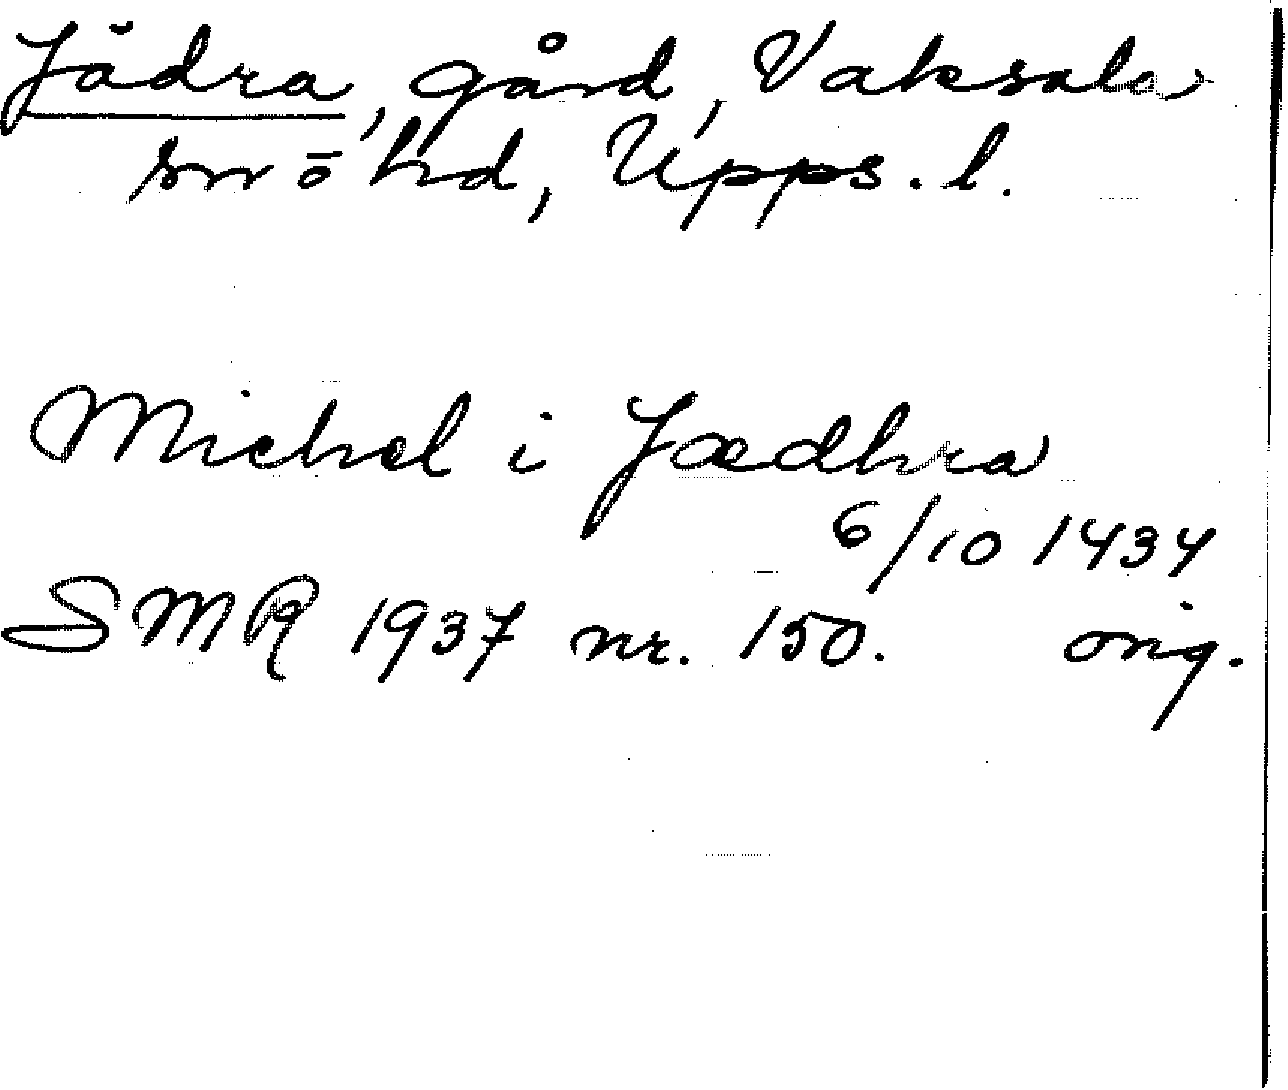 Jädra, gård, Vaksala
sn ō hd, Upps. l.
Michel i Jædhra
6/10 1434
SMR 1937 nr. 150. orig.